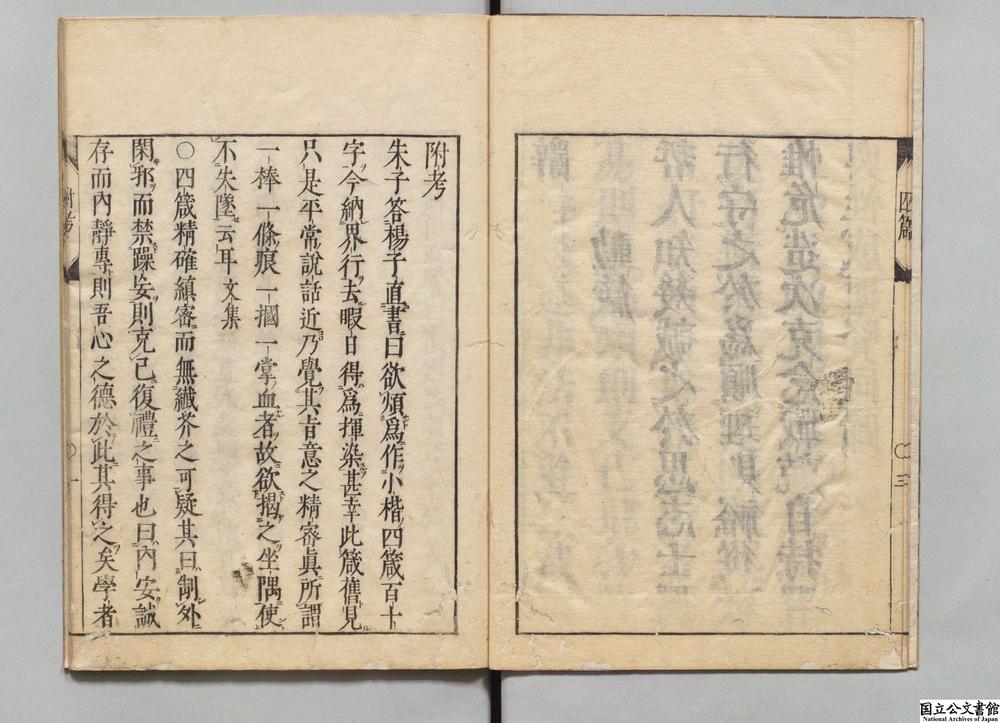 四箴
〇三
附考
朱子答楊子直書曰欲煩爲作小楷四箴百十
字今納界行去暇日得爲揮染甚幸此箴舊見
只是平常說話近乃覺其旨意之精密眞所謂
一棒一條痕一摑一掌血者故欲揭之坐隅使
不失墜云耳 文集
〇四箴精確縝密而無纖芥之可疑其曰制外
閑邪而禁躁妄則克己復禮之事也曰內安誠
存而內靜專則吾心之德於此其得之矣學者
附考
〇一
国立公文書館
National Archives of Japan